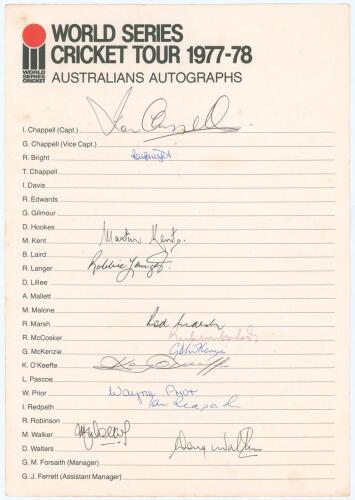 WORLD SERIES
CRICKET TOUR 1977-78
WORLD
SERIES
CRICKET
AUSTRALIANS AUTOGRAPHS
I. Chappell (Capt.) Ian Chappell
G. Chappell (Vice Capt.)
R. Bright
T. Chappell
I. Davis
R. Edwards
G. Gilmour
D. Hookes
M. Kent Martin Kent
B. Laird
R. Langer Robbie Langer
D. Lillee
A. Mallett
M. Malone
R. Marsh Rod Marsh
R. McCosker
G. McKenzie G McKenzie
K. O'Keeffe
L. Pascoe
W. Prior Wayne Prior
I. Redpath Ian Redpath
R. Robinson
M. Walker
D. Walters Doug Walters
G. M. Forsaith (Manager)
G. J. Ferrett (Assistant Manager)